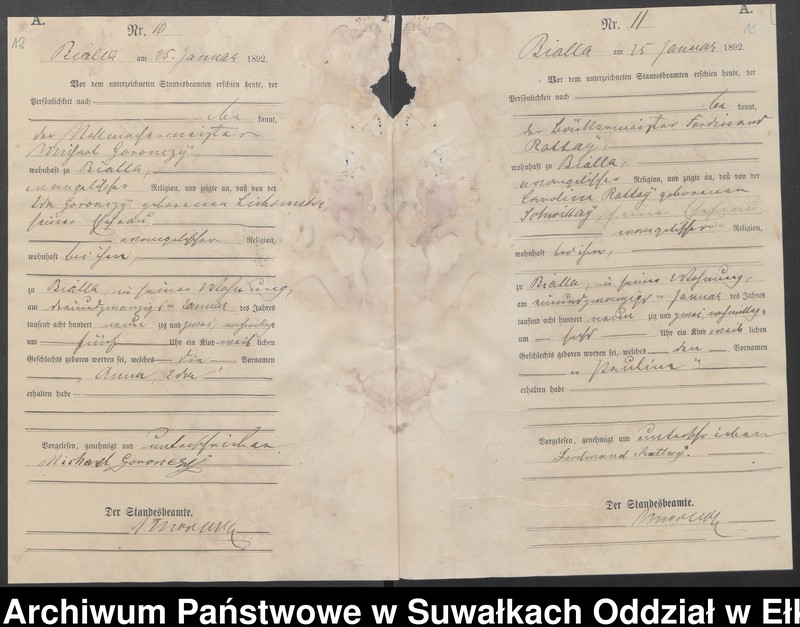 A.
Nr. 10
12
Bialla am 25. Januar 1892.
Vor dem unterzeichneten Standesbeamten erschien heute, der
Persönlichkeit nach
be kannt,
der
Michael Goronczÿ,
wohnhaft zu Bialla,
evangelischer Religion, und zeigte an, daß von der
Eda Goronczÿ geborenen
seiner Ehefrau,
evangelischer Religion,
wohnhaft bei ihm,
zu Bialla, in seiner Wohnung,
am dreiundzwanzigsten Januar des Jahres
tausend acht hundert neun zig und zwei, nachmittags
um fünf Uhr ein Kind weib lichen
Geschlechts geboren worden sei, welches die Vornamen
Anna, Eda
erhalten habe
Vorgelesen, genehmigt und unterschrieben
Michael Goronczÿ
Der Standesbeamte.
A.
Nr. 11
Bialla am 25 Januar 1892.
Vor dem unterzeichneten Standesbeamten erschien heute, der
Persönlichkeit nach
be kannt,
der Böttchermeister Ferdinand
Rattaÿ,
wohnhaft zu Bialla,
evangelischer Religion, und zeigte an, daß von der
Carolina Rattaÿ geborenen
seiner Ehefrau,
evangelischer Religion,
wohnhaft bei ihm,
zu Bialla, in seiner Wohnung,
am einundzwanzigsten Januar des Jahres
tausend acht hundert neun zig und zwei, nachmittags
um sechs Uhr ein Kind weib lichen
Geschlechts geboren worden sei, welches den Vornamen
"Pauline"
erhalten habe
Vorgelesen, genehmigt und unterschrieben
Ferdinand Rattaÿ.
Der Standesbeamte.
Archiwum Państwowe w Suwałkach Oddział w Ełk